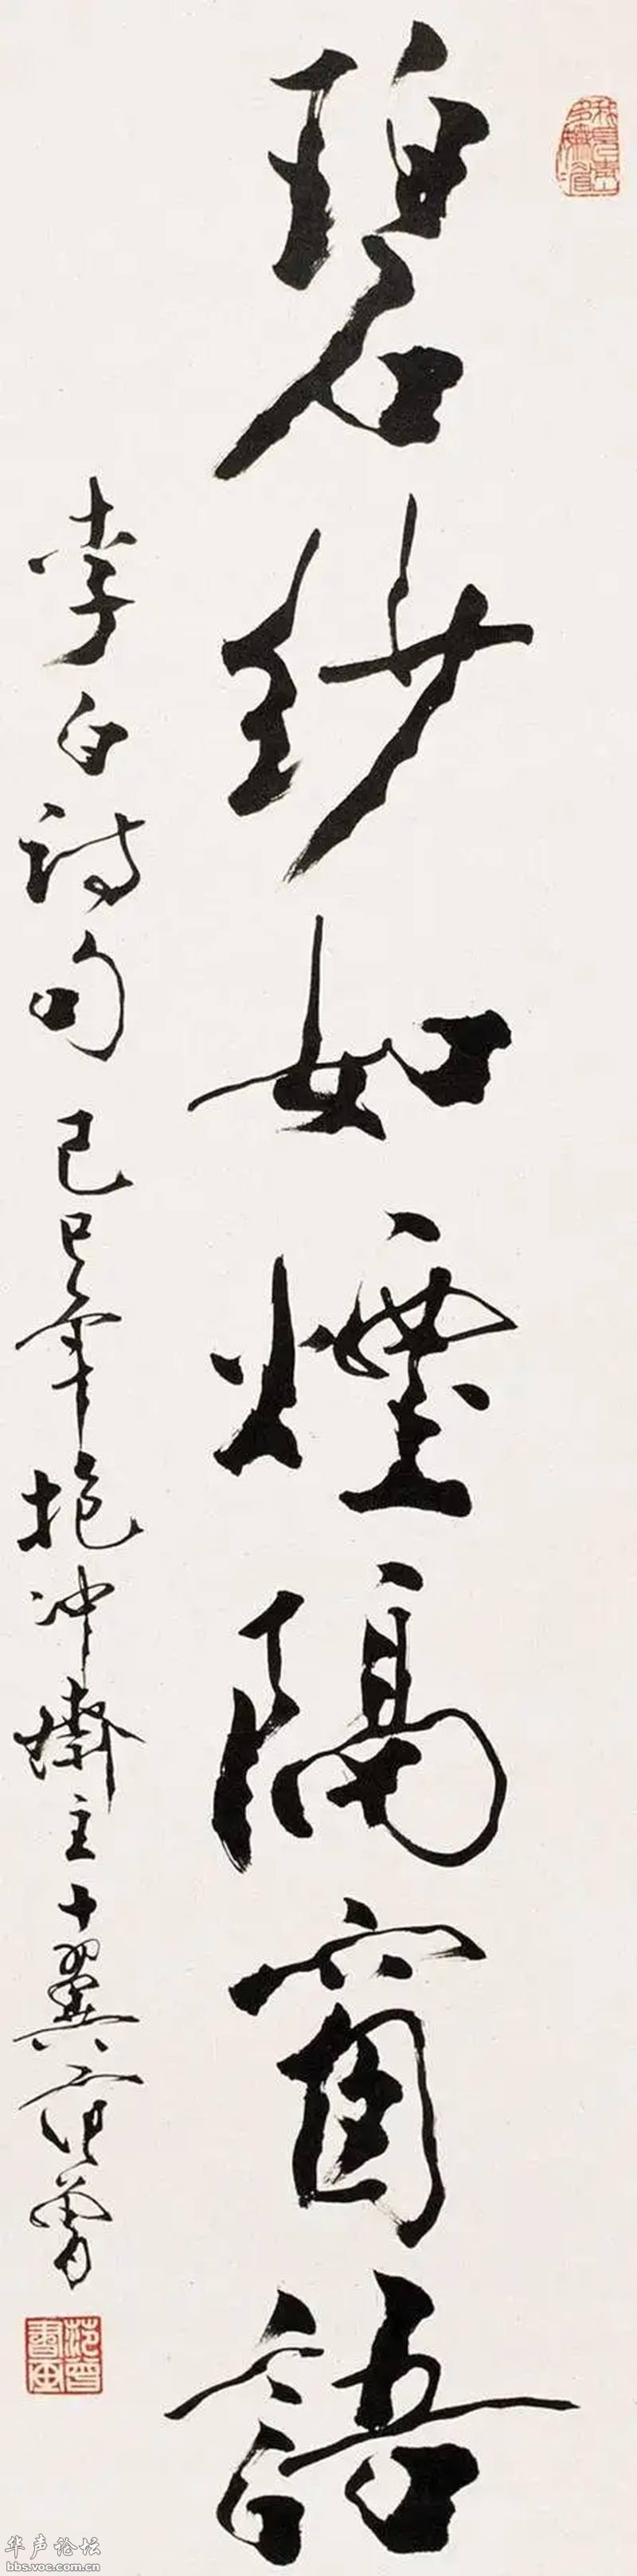 碧纱如煙隔窗語
李白詩句 己巳年 抱冲齋主十翼范曾
范曾書画
华声论坛
bbs.voc.com.cn